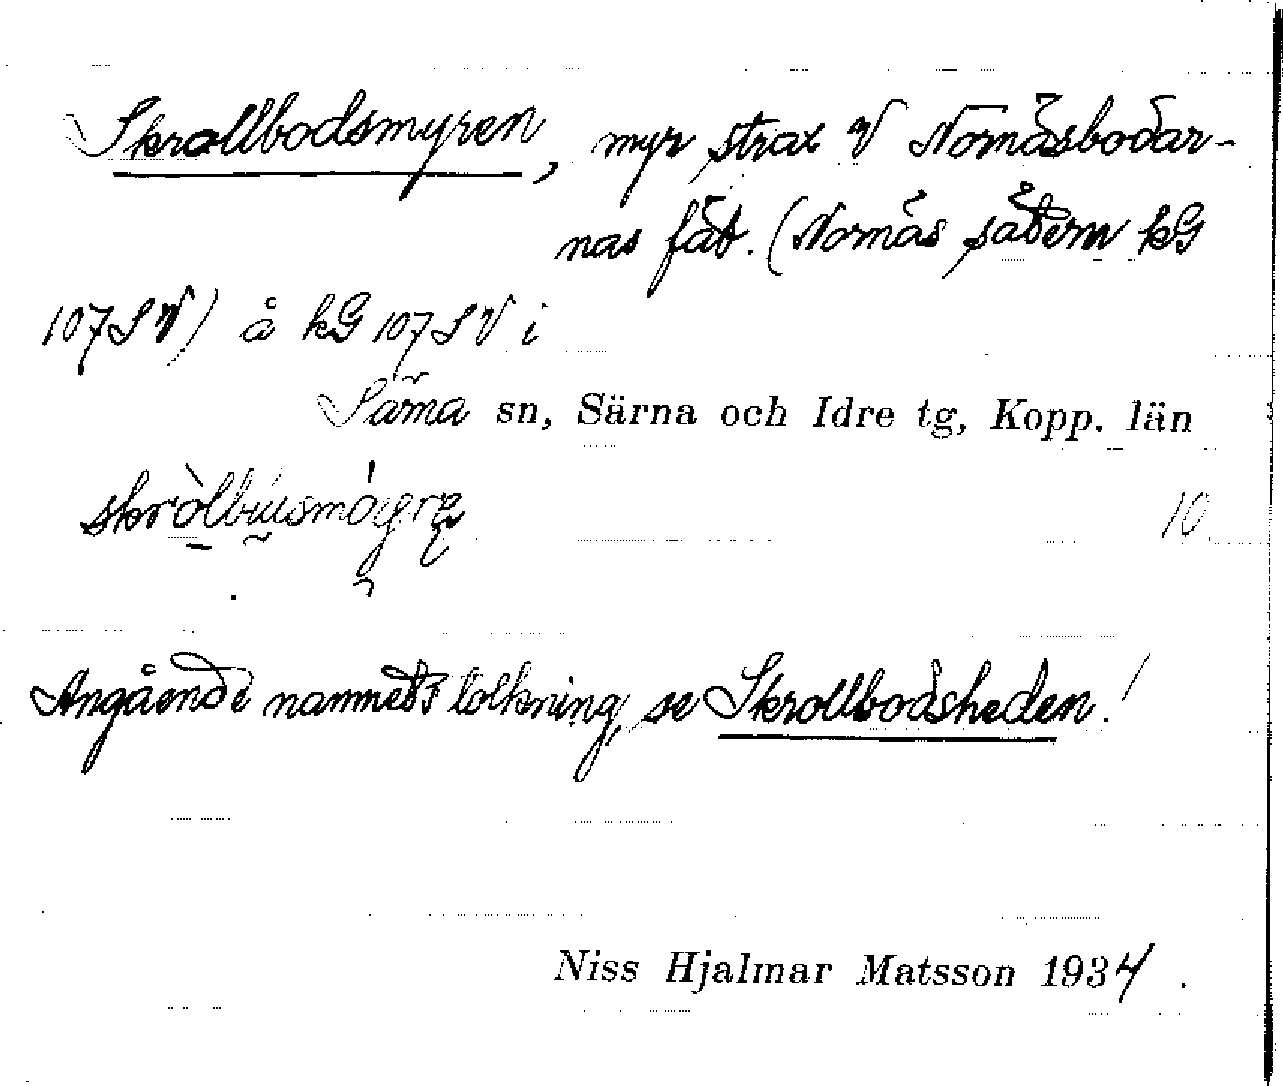 Skrollbodsmyren, myr strax V Nornäsbodar-
nas fäb. (Nornäs sätern kG
107 SV) å kG 107 SV i
Särna sn, Särna och Idre tg, Kopp. län
10
Angående namnets tolkning, se Skrollbodsheden!
Niss Hjalmar Matsson 1934.